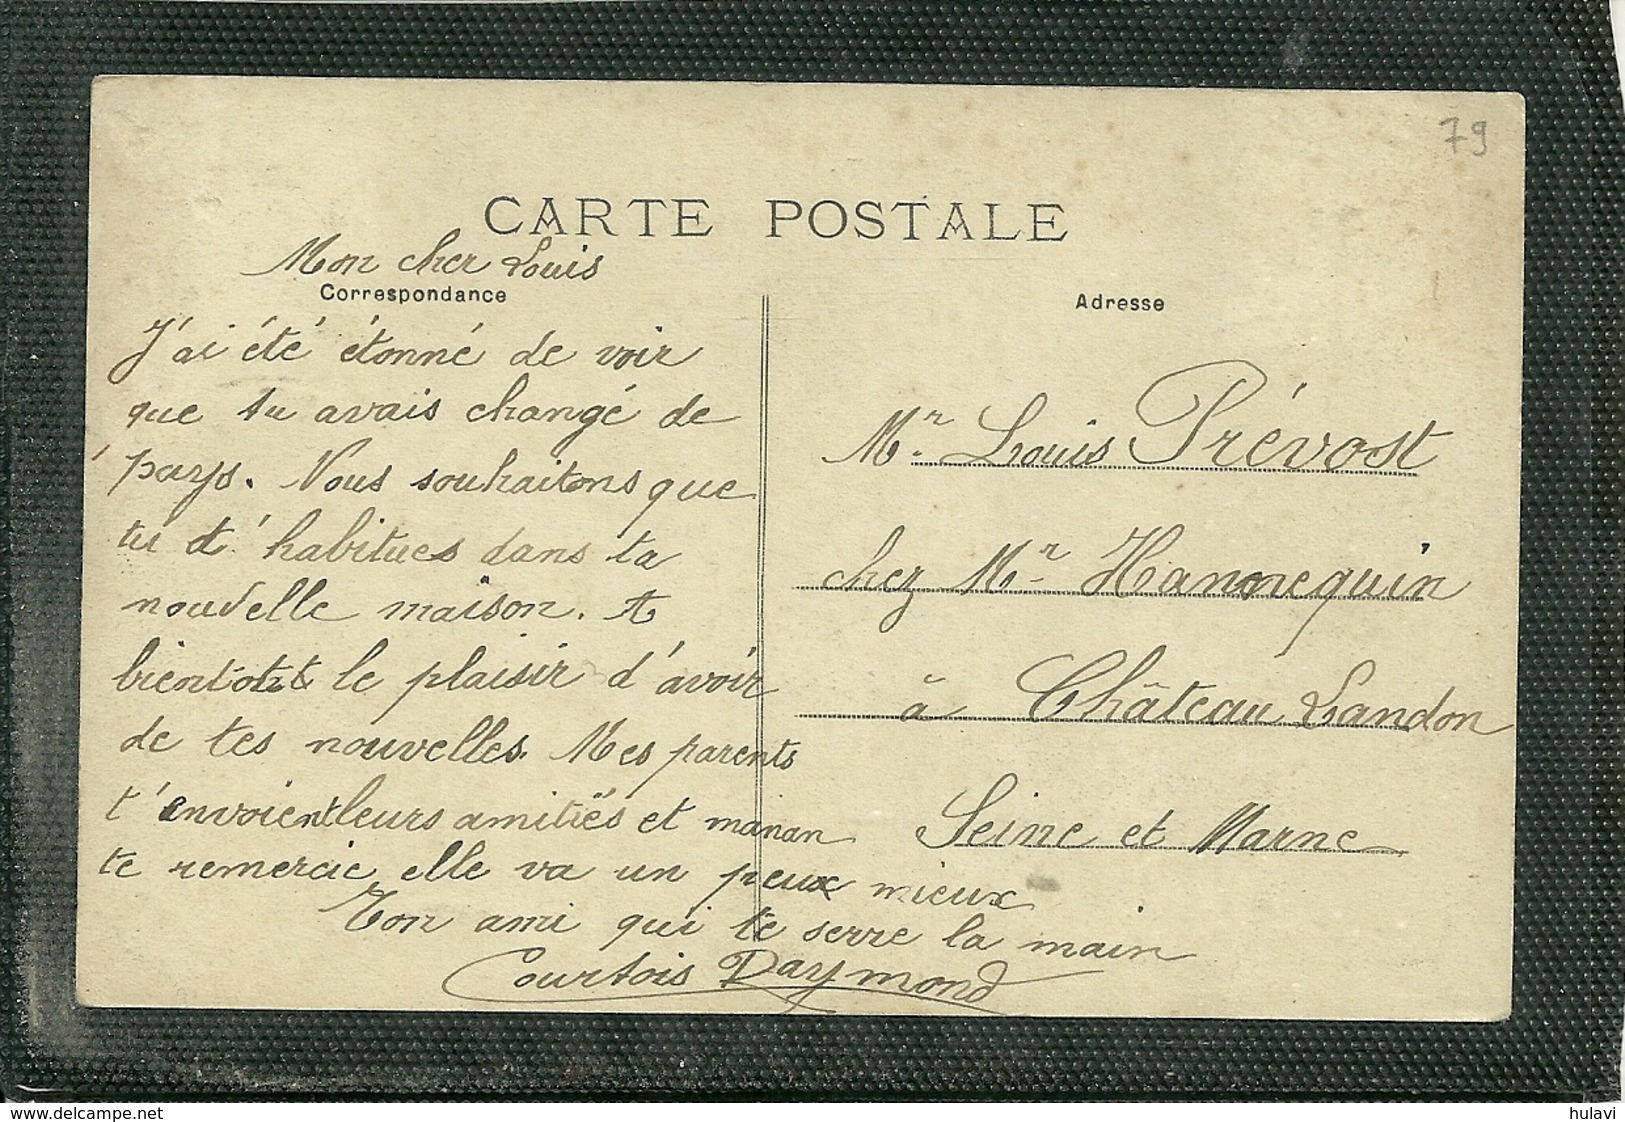 79
CARTE POSTALE
Mon cher Louis
Correspondance
J'ai été étonné de voir
que tu avais changé de
pays. Nous souhaitons que
tu t'habitues dans ta
nouvelle maison. A
bientôt le plaisir d'avoir
de tes nouvelles. Mes parents
t'envoient leurs amitiés et maman
te remercie elle va un peux mieux
Ton ami qui te serre la main
Courtois Raymond
Adresse
Mr. Louis Prévost
chez Mr Hannequin
à Château Landon
Seine et Marne
delcampe.net
hulavi